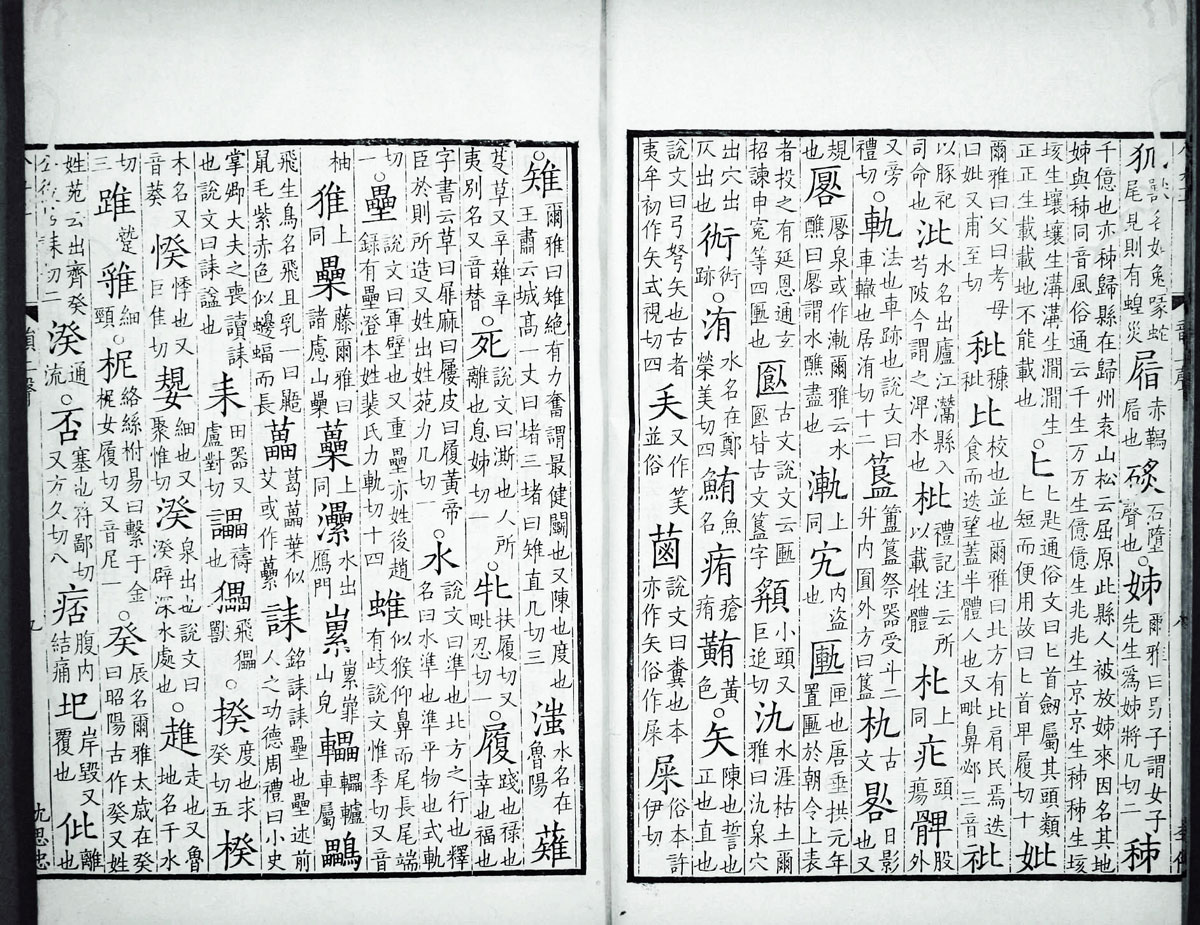 獸名如兔喙蛇尾見則有蝗災 石墮聲也○姊爾雅曰男子謂女子先生爲姊將几切二秭
千億也亦秭歸縣在歸州袁山松云屈原此縣人被放姊來因名其地姊與秭同音風俗通云千生万万生億億生兆兆生京京生秭秭生垓
垓生壤壤生溝溝生澗澗生正正生載載地不能載也○匕匕匙通俗文曰匕首劒屬其頭類匕短而便用故曰匕首卑履切十妣
爾雅曰父曰考母曰妣又甫至切秕穅秕比校也並也爾雅曰北方有比肩民焉迭食而迭望蓋半體人也又毗鼻邲三音𥘔
以豚祀司命也沘水名出廬江灊縣入芍陂今謂之淠水也枇禮記注云所以載牲體朼上同疕頭瘍髀股外
又旁禮切○軌法也車跡也說文曰車轍也居洧切十二簋簠簋祭器受斗二升内圓外方曰簋朹古文晷日影也又
規也厬厬泉或作漸爾雅云水醮曰厬謂水醮盡也漸上同宄内盗也匭匣也唐垂拱元年置匭於朝令上表
者投之有延恩通玄招諫申寃等四匭也 古文說文云匭 皆古文簋字頯小頭又巨追切氿水涯枯土爾雅曰氿泉穴
出出穴出仄出也 跡○洧水名在鄭榮美切四鮪魚名痏瘡痏䵋黃色○矢陳也誓也正也直也
說文曰弓弩矢也古者夷牟初作矢式視切四 又作 並俗𦳊說文曰糞也本亦作矢俗作屎屎俗本許伊切
○雉爾雅曰雉絶有力奮謂最健鬬也又陳也度也王肅云城高一丈曰堵三堵曰雉直几切三滍水名在魯陽薙
芟草又辛薙辛夷別名又音替○死說文曰澌也人所離也息姊切一○牝扶履切又毗忍切一○履踐也禄也幸也福也
字書云草曰屝麻曰屨皮曰履黃帝臣於則所造又姓出姓苑力几切一○水說文曰準也北方之行也釋名曰水準也準平物也式軌
切一○壘說文曰軍壁也又重壘亦姓後趙錄有壘澄本姓裴氏力軌切十四蜼似猴仰鼻而尾長尾端有歧說文惟季切又音
柚 上同櫐藤爾雅曰諸慮山櫐虆上同灅水出鴈門 山皃轠轠轤車屬鸓
飛生鳥名飛且乳一曰鼯鼠毛紫赤色似蝙蝠而長藟葛藟葉似艾或作虆誄銘誄誄壘也壘述前人之功德周禮曰小史
掌卿大夫之喪讀誄也說文曰誄謚也耒田器又盧對切讄禱也 飛 獸○揆度也求癸切五楑
木名又音葵悸悸也又巨隹切嫢細也又聚惟切湀泉出也說文曰湀辟深水處也○趡走也又魯地名千水
切三踓蹵雖細頸○柅絡絲柎易曰繫于金柅女履切又音尼一○癸辰名爾雅太歲在癸曰昭陽古作癸又姓
姓苑云出齊癸 二湀通流○否塞也符鄙切又方久切八痞腹内結痛圮岸毁又覆也仳離也
沈思忠